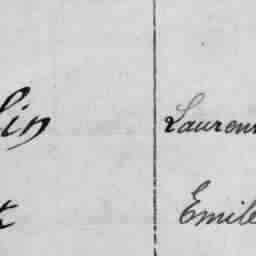 lin Lauren
t Emile